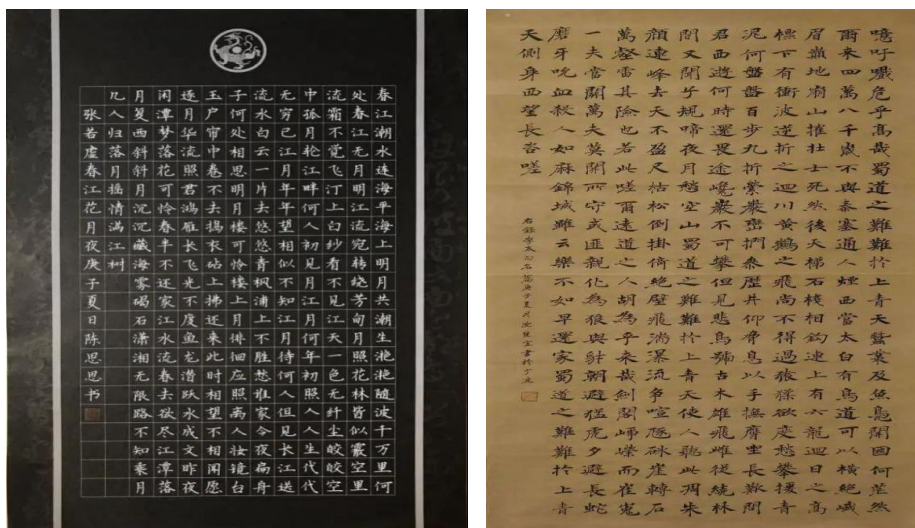 春江潮水连海平海上明月共潮生滟滟随波千万里何
处春江无月明江流宛转绕芳甸月照花林皆似霰空里
流霜不觉飞汀上白纱看不见江天一色无纤尘皎皎空
中孤月轮江畔何人初见月江月何年初照人人生代代
无穷已江月年年望相似不知江月待何人但见长江送
流水白云一片去悠悠青枫浦上不胜愁谁家今夜扁舟
子何处相思明月楼可怜楼上月徘徊应照离人妆镜台
玉户帘中卷不去捣衣砧上拂还来此时相望不相闻愿
逐月华流照君鸿雁长飞光不度鱼龙潜跃水成文昨夜
闲潭梦落花可怜春半不还家江水流春去欲尽江潭落
月复西斜斜月沉沉藏海雾碣石潇湘无限路不知乘月
几人归落月摇情满江树
张若虚春江花月夜庚子夏日陈思思书
噫吁嚱危乎高哉蜀道之難難於上青天蠶叢及魚鳧開國何茫然
爾来四萬八千歲不與秦塞通人煙西當太白有鳥道可以橫絶峨
眉巔地崩山摧壮士死然後天梯石棧相鉤連上有六龍迴日之高
標下有衝波逆折之迴川黄鶴之飛尚不得過猿猱欲度愁攀援青
泥何盤盤百步九折縈巖巒捫參歷井仰脅息以手撫膺坐長歎問
君西遊何時還畏途巉巖不可攀但見悲鳥號古木雄飛雌從繞林
間又聞子規啼夜月愁空山蜀道之難難於上青天使人聽此凋朱
顔連峰去天不盈尺枯松倒掛倚絶壁飛湍瀑流爭喧豗砯崖轉石
萬壑雷其險也若此嗟爾遠道之人胡為乎来哉劍閣崢嶸而崔嵬
一夫當關萬夫莫開所守或匪親化為狼與豺朝避猛虎夕避長蛇
磨牙吮血殺人如麻錦城雖云樂不如早還家蜀道之難難於上青
天側身西望長咨嗟